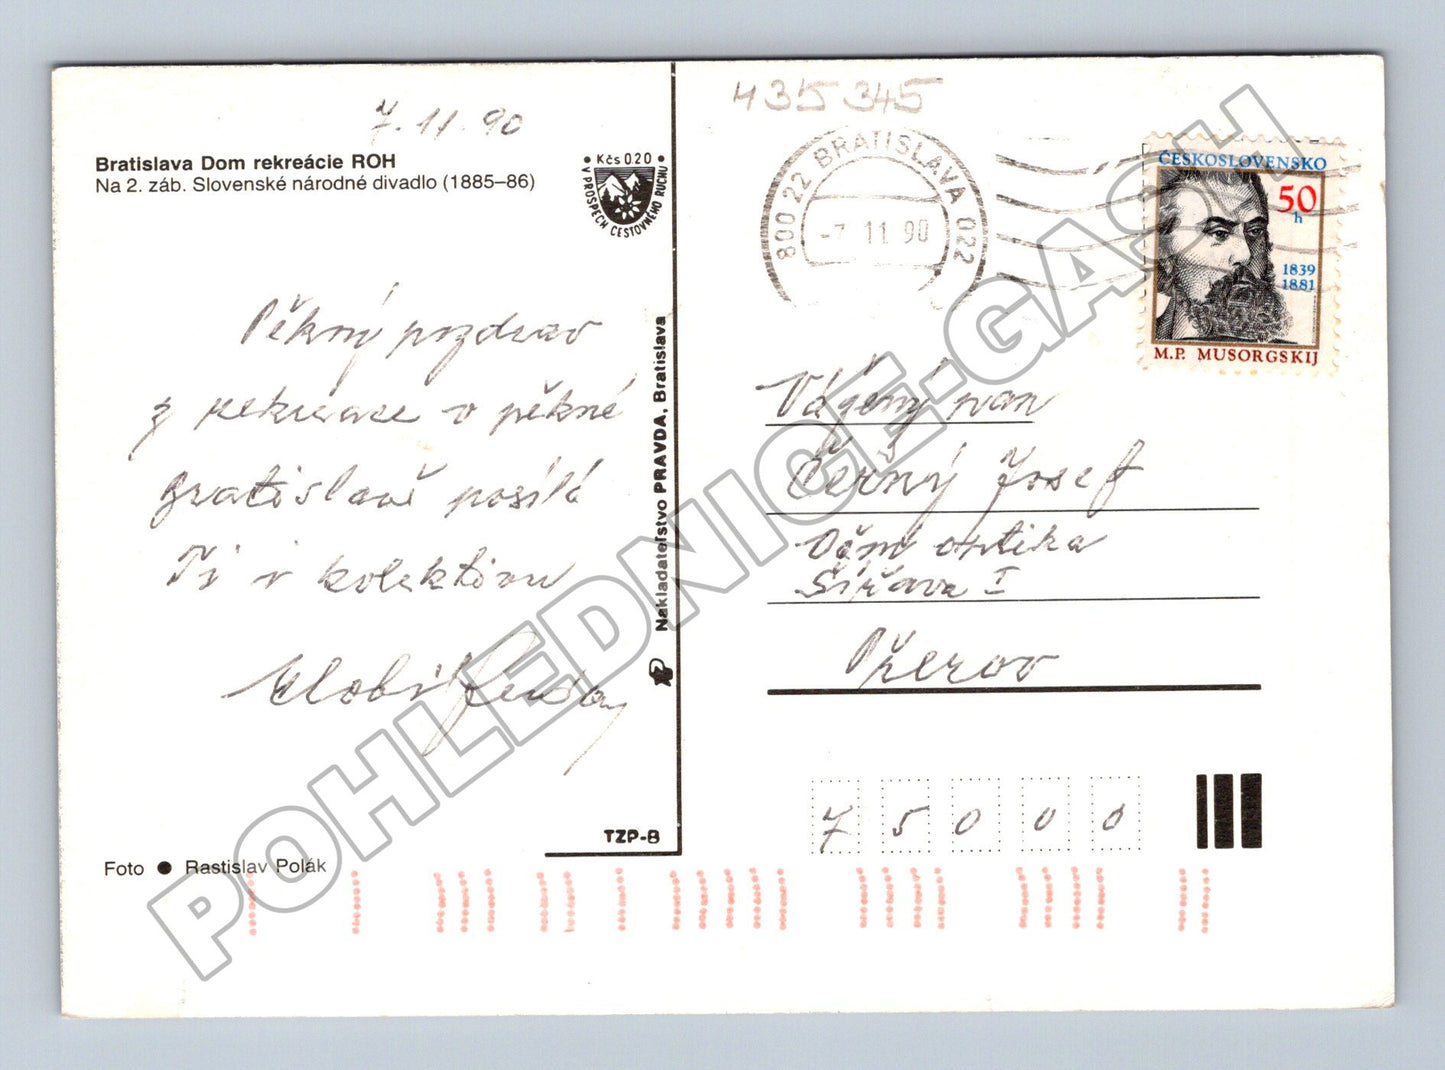 7.11.90
Bratislava Dom rekreácie ROH
Na 2. záb. Slovenské národné divadlo (1885–86)
• Kčs 0.20 •
V PROSPECH CESTOVNÉHO RUCHU
Pěkný pozdrav
z rekreace v pěkné
Bratislavě posílá
Ti i kolektivu
Nakladateľstvo PRAVDA, Bratislava
TZP-B
Foto ● Rastislav Polák
435 345
800 22 BRATISLAVA 022
-7. 11. 90
ČESKOSLOVENSKO
50
h
1839
1881
M.P. MUSORGSKIJ
Vážený pan
Černý Josef
Dům optika
Šířava I
Přerov
75000
POHLEDNICE-GASH